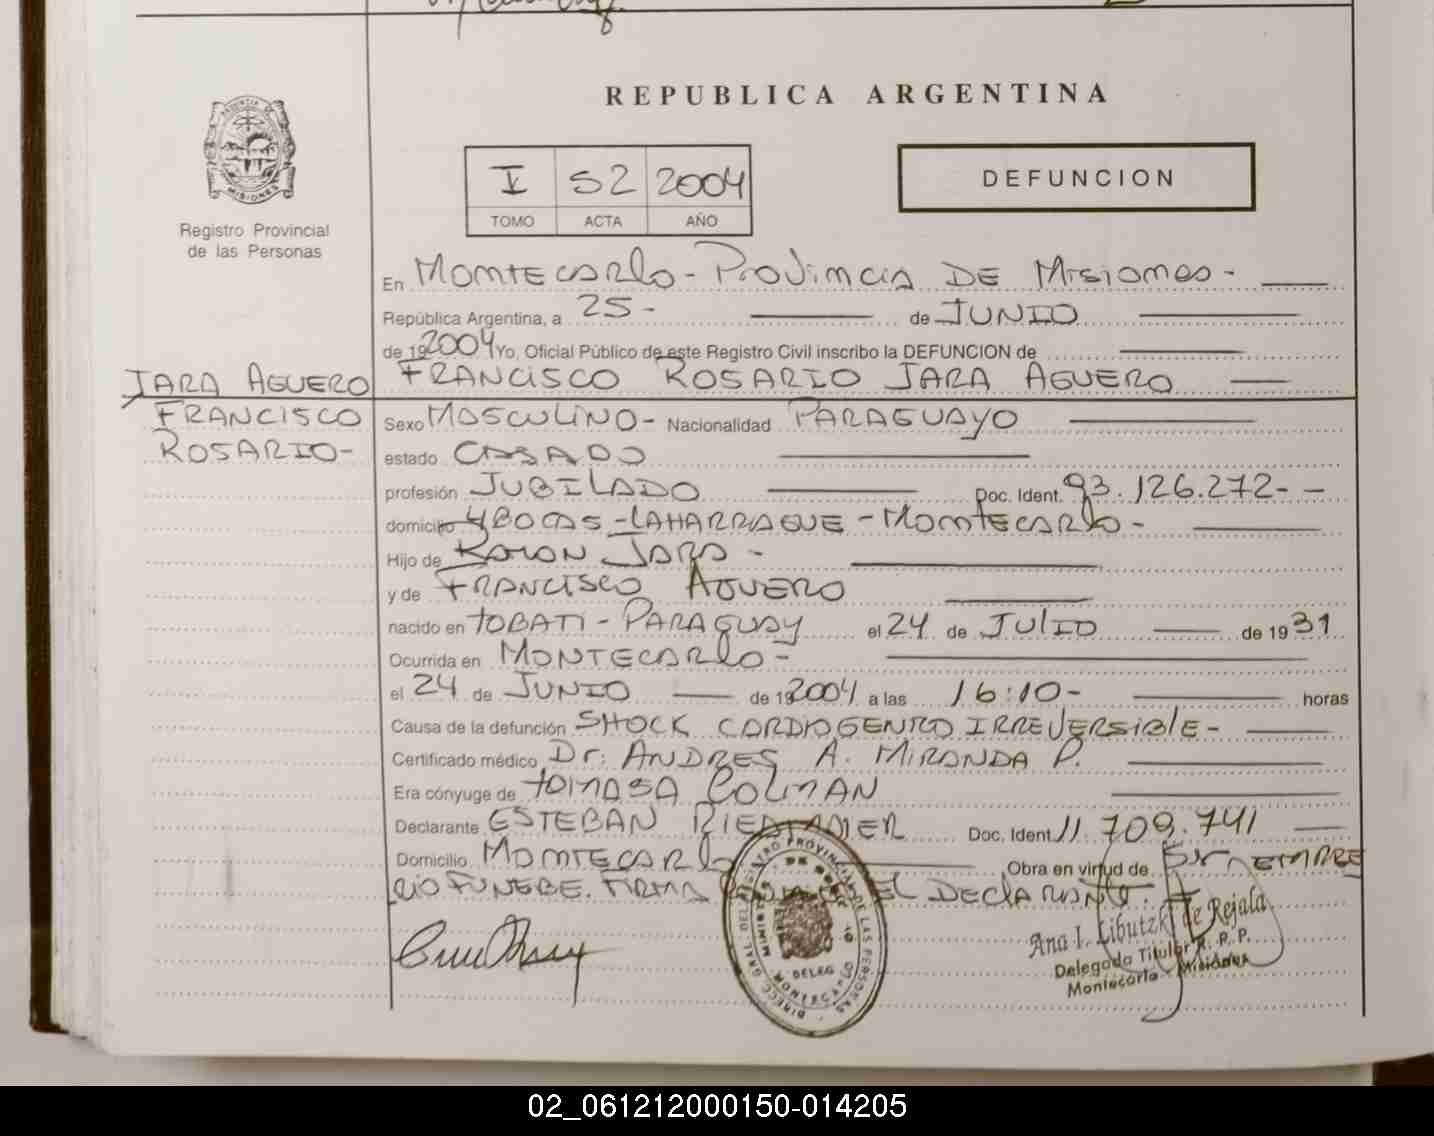 REPUBLICA ARGENTINA
I 52 2004
TOMO ACTA AÑO
DEFUNCION
MISIONES
Registro Provincial
de las Personas
En MONTECARLO - PROVINCIA DE MISIONES -
República Argentina, a 25 - de JUNIO
de 19 2004 Yo, Oficial Público de este Registro Civil inscribo la DEFUNCION de
JARA AGUERO FRANCISCO ROSARIO JARA AGUERO
FRANCISCO Sexo MASCULINO - Nacionalidad PARAGUAYO
ROSARIO - estado CASADO
profesión JUBILADO Doc. Ident. 93.126.272 - -
domicilio 4 BOCAS - LAHARRAGUE - MONTECARLO -
Hijo de RAMON JARA -
y de FRANCISCO AGUERO
nacido en TOBATI - PARAGUAY el 24 de JULIO de 19 31
Ocurrida en MONTECARLO -
el 24 de JUNIO de 19 2004 a las 16:10 - horas
Causa de la defunción SHOCK CARDIOGENRO IRREVERSIBLE -
Certificado médico Dr. ANDRES A. MIRANDA P.
Era cónyuge de TOMASA COLMAN
Declarante ESTEBAN Doc. Ident. 11.709.741
Domicilio MONTECARLO Obra en virtud de
RIO FUNEBE. FIRMA EL DECLARANTE.
Ana I. Libutzki de Rejala
Delegada Titular R. P. P.
Montecarlo - Misiones
02_061212000150-014205